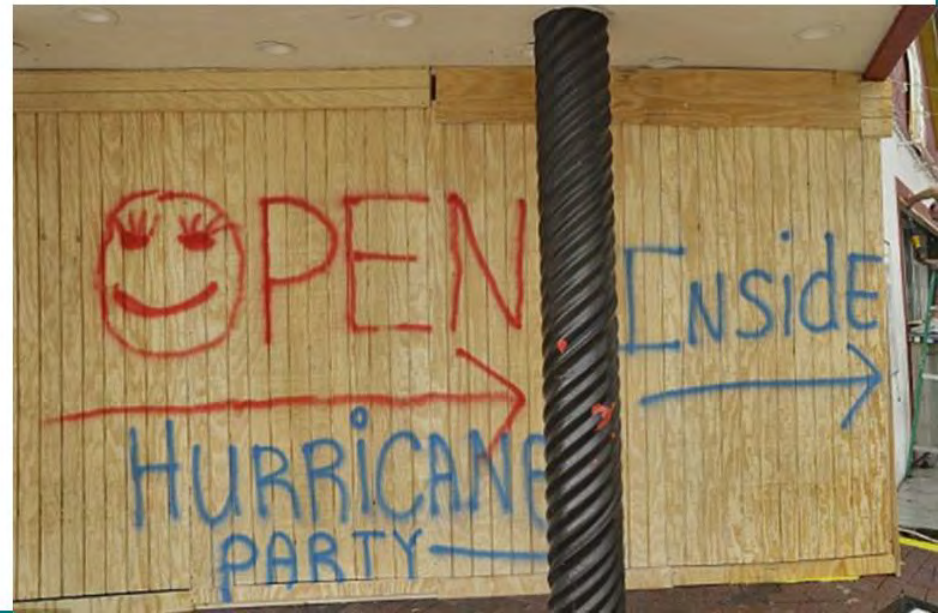 OPEN
INSidE
HURRiCANE
PARTY